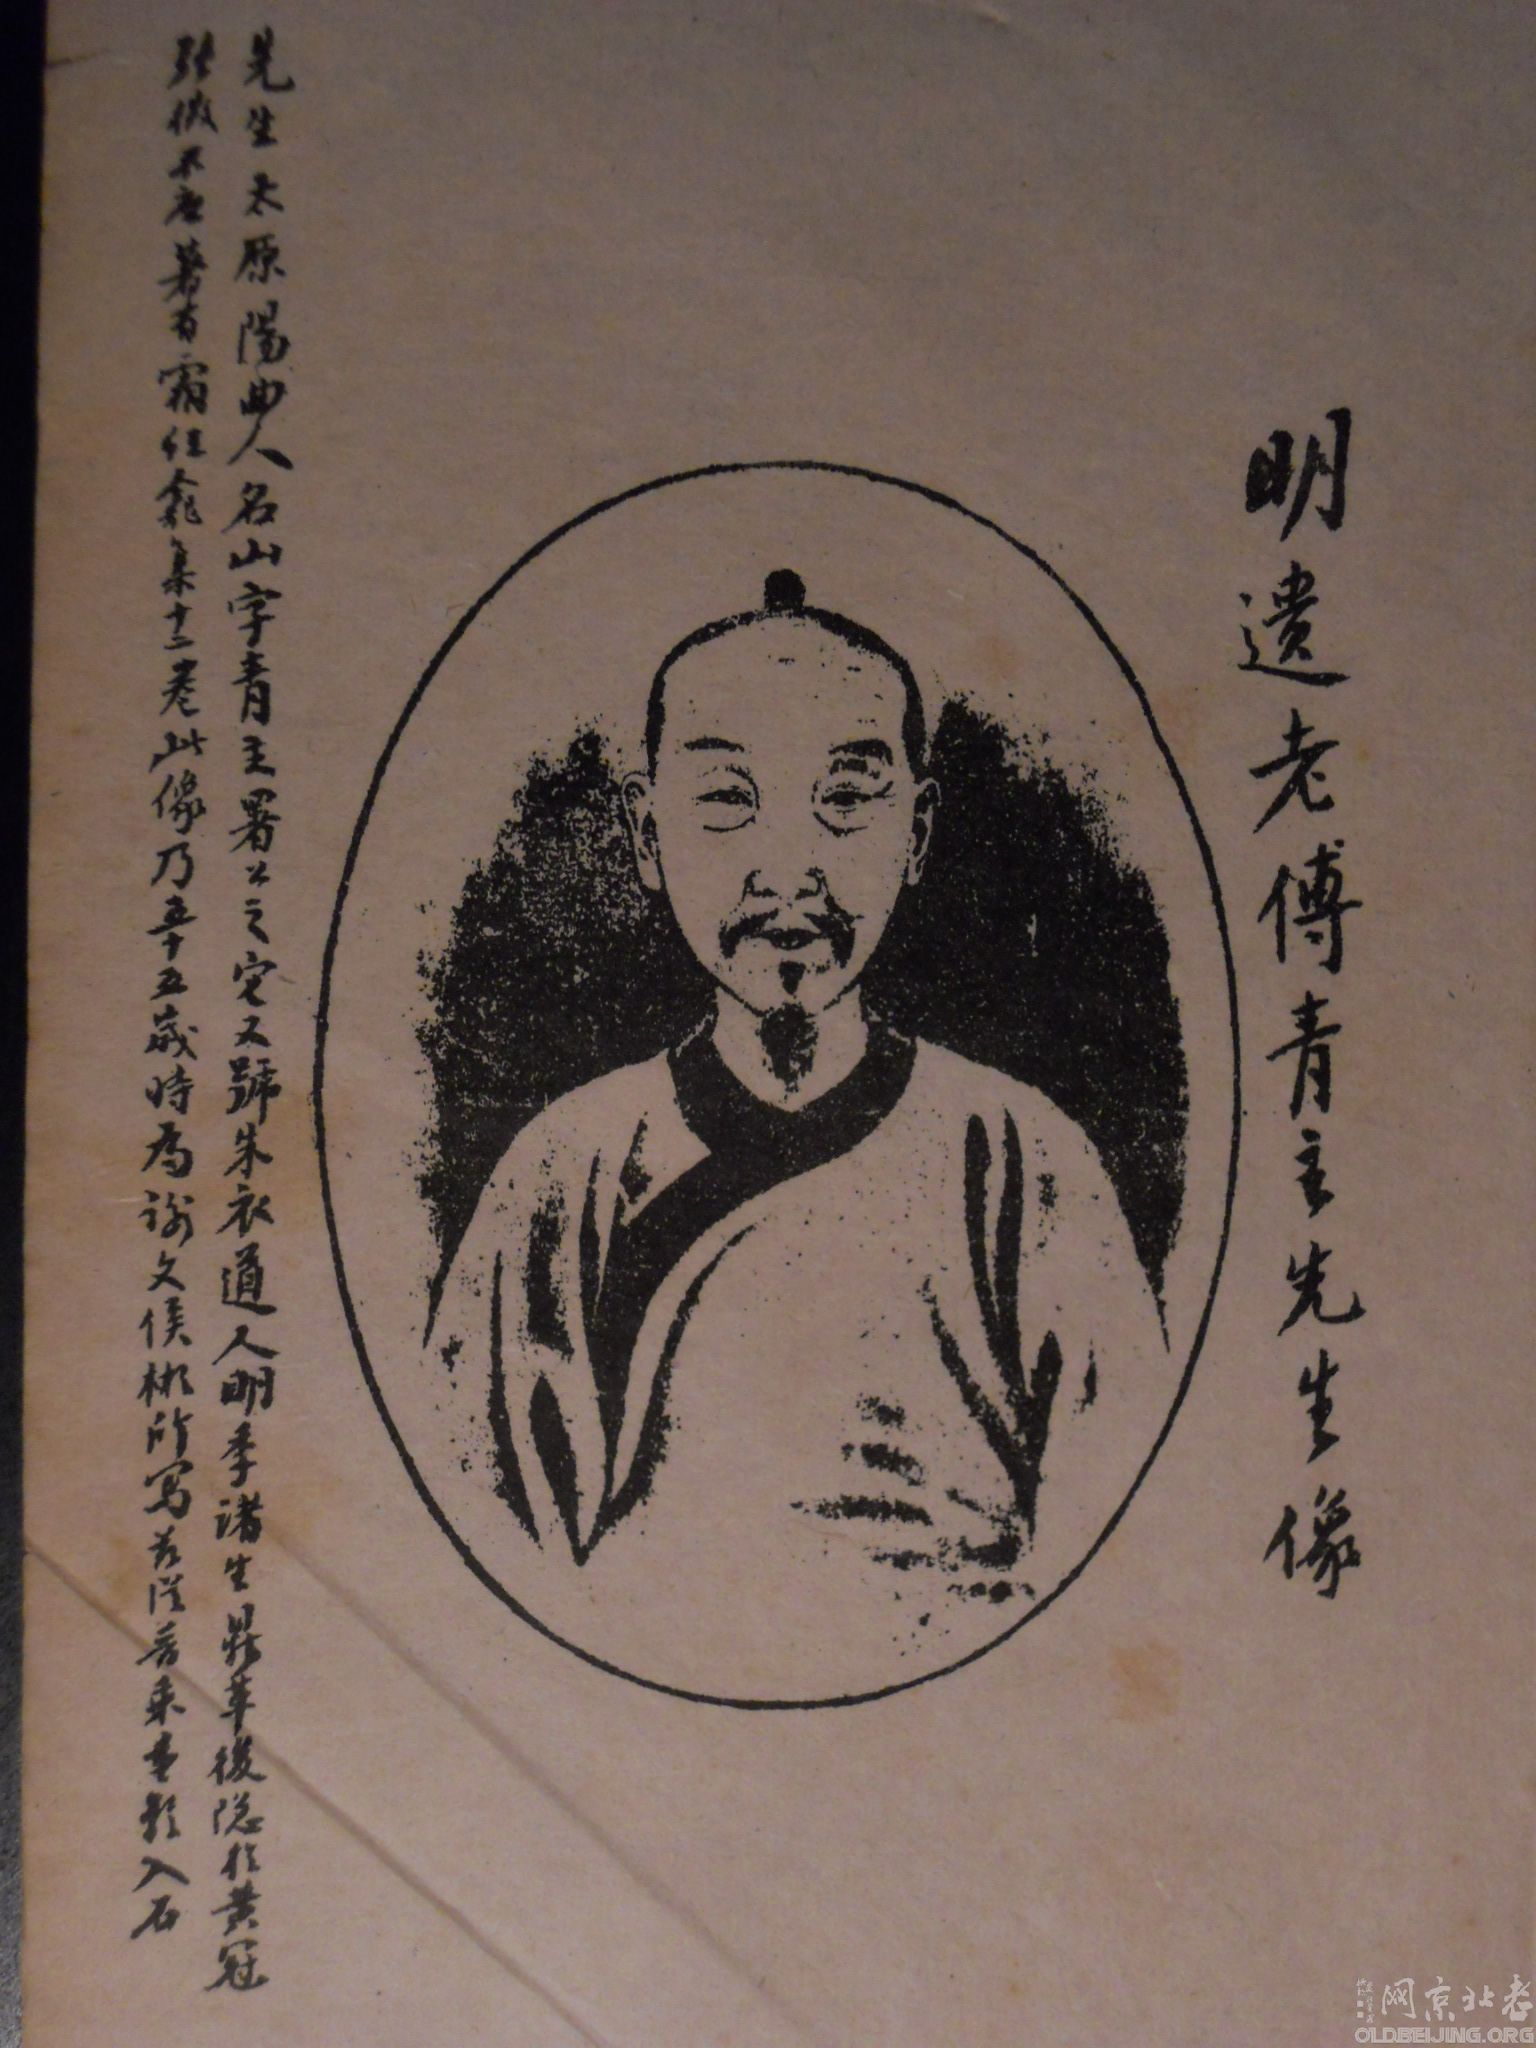 明遺老傅青主先生像
先生太原陽曲人名山字青主署公之它又號朱衣道人明季諸生鼎革後隐於黄冠
張徵不应著有霜红龕集十二卷此像乃五十五歲時為文侯彬所写 入石
老北京网
OLDBEIJING.ORG